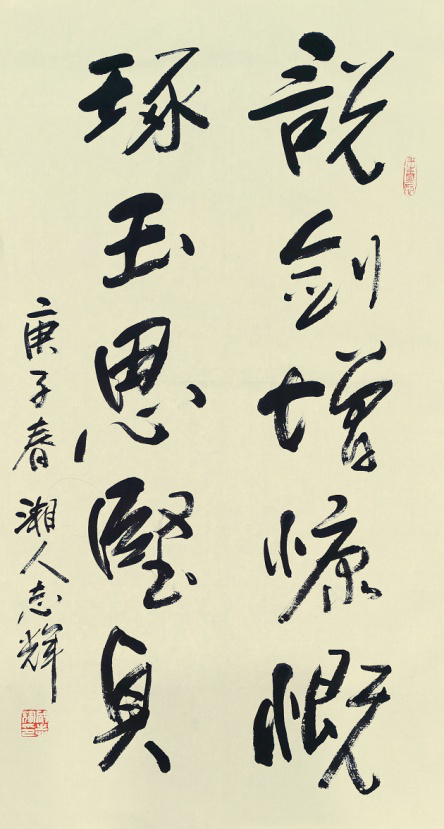 說劍增慷慨
琢玉思堅貞
庚子春 湘人志輝